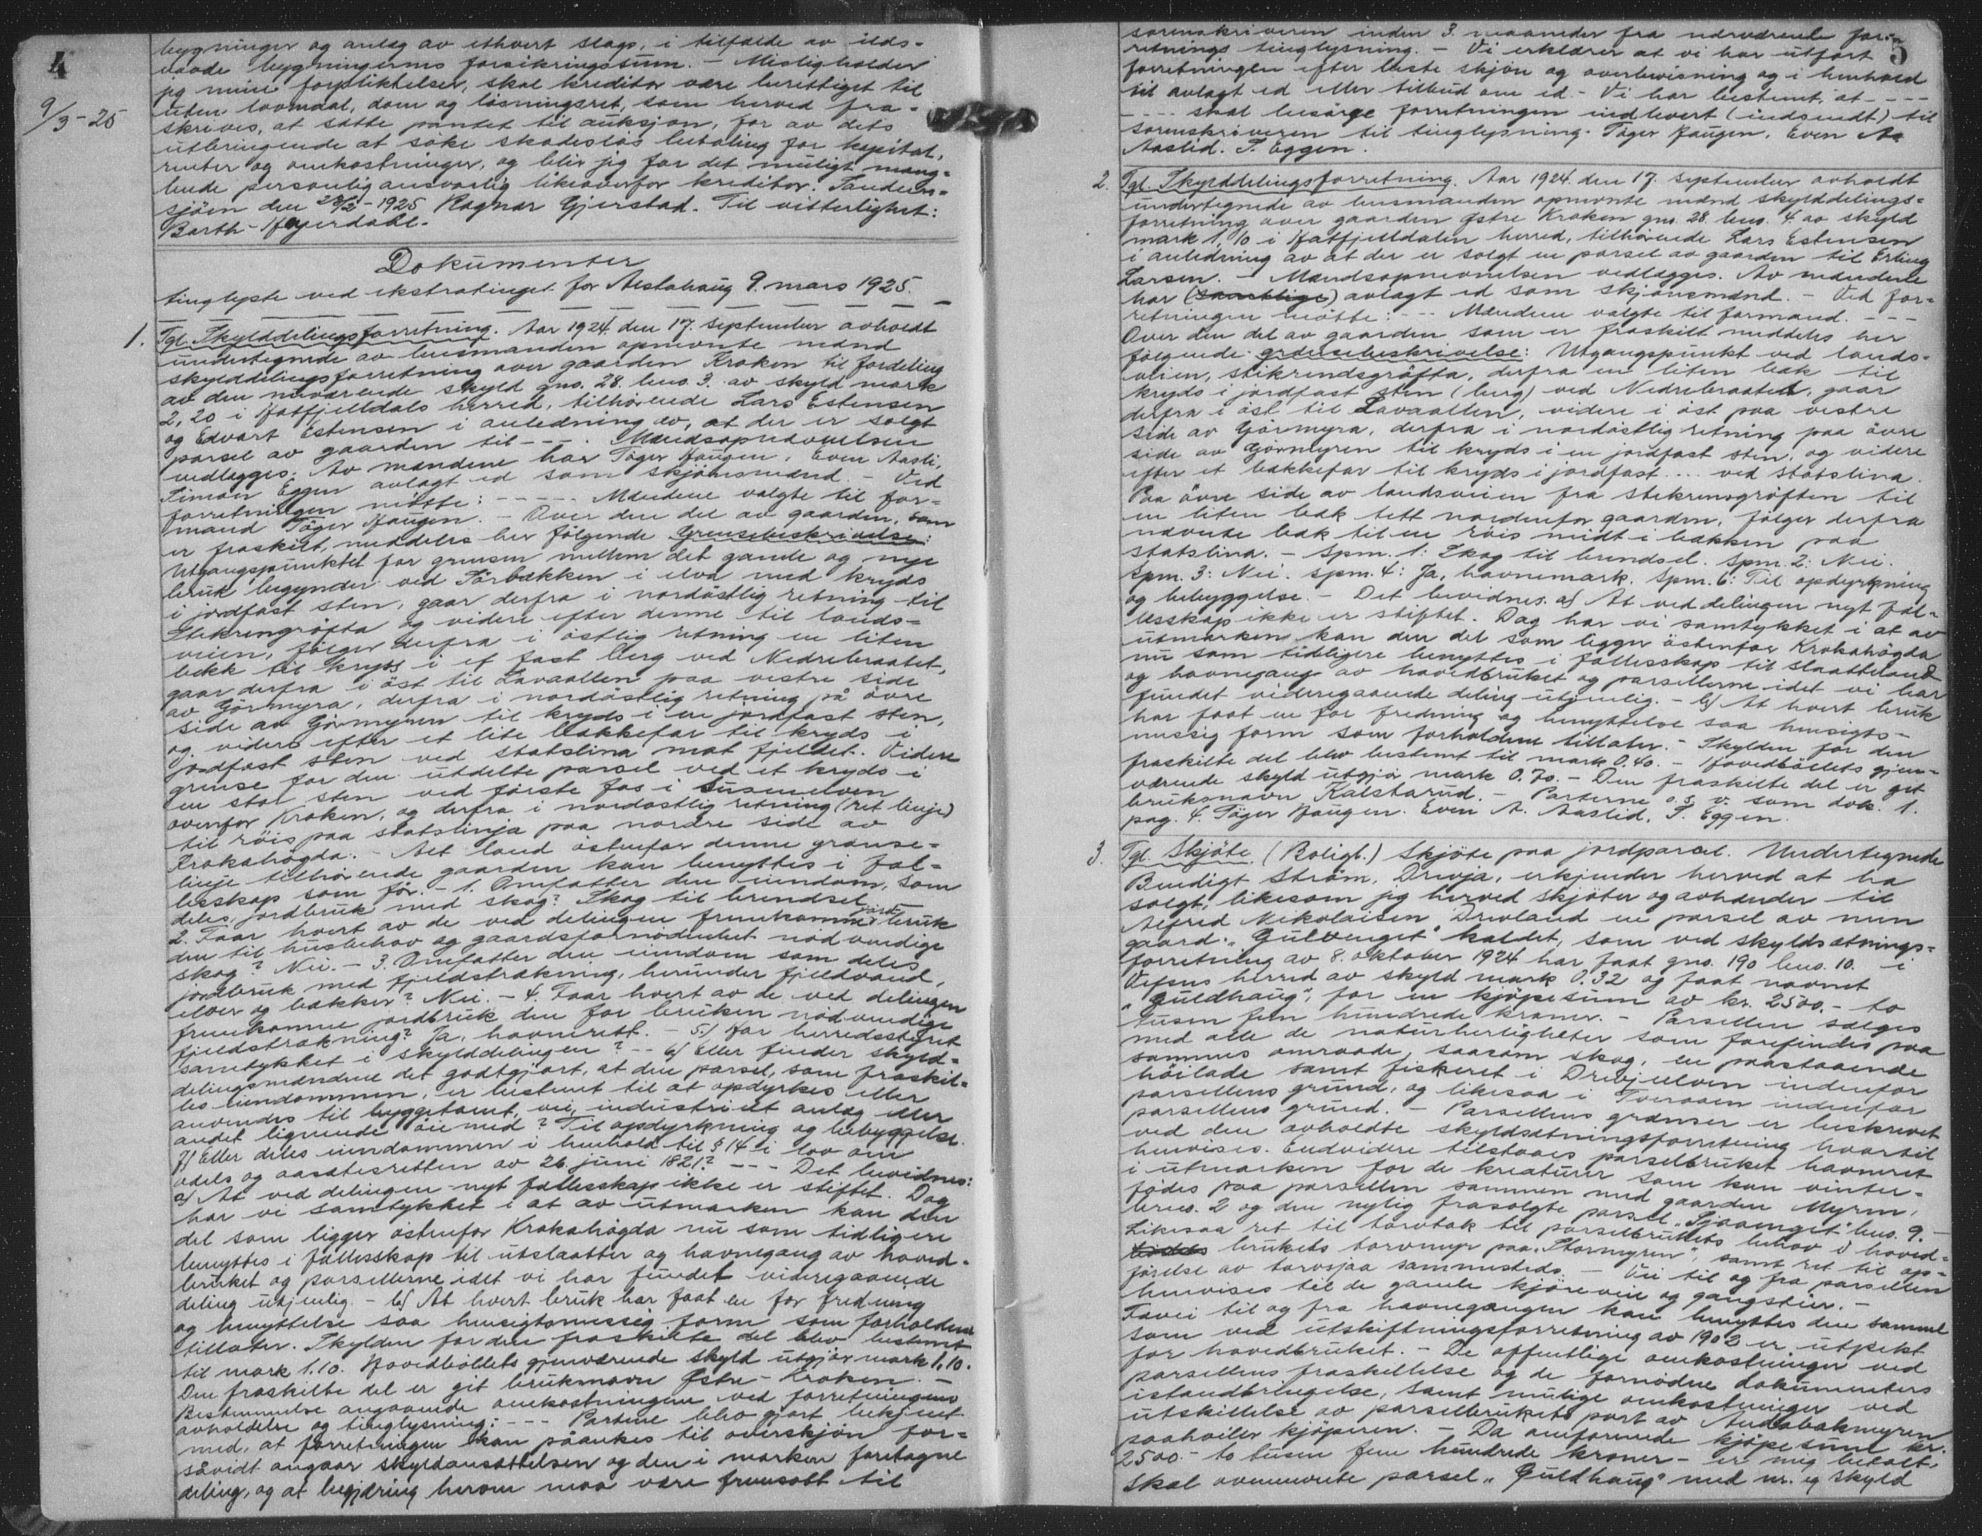 4
9/3-25
bygninger og anlæg av ethvert slags, i tilfælde av ilds-
vaade bygningernes forsikringssum. - Misligholder
jeg mine forpliktelser, skal kreditor være berettiget til
uten lovmaal, dom og løsningsret, som herved fra-
skrives, at sætte pantet til auksjon, for av dets
utbringende at söke skadeslös betaling for kapital,
renter og omkostninger, og blir jeg for det muligt mang-
lende personlig ansvarlig likeoverfor kreditor. Sandnes-
sjöen den 28/2-1925 Ragnar Gjerstad. Til vitterlighet:
Barth-Heyerdahl.
Dokumenter
tinglyste ved ekstratinget for Alstahaug 9. mars 1925.
1. Tgl. Skylddelingsforretning. Aar 1924 den 17. september avholdt
undertegnede av lensmanden opnævnte mænd
skylddelingsforretning over gaarden Kroken til fordeling
av den nuværende skyld gno. 28. bno. 3. av skyld mark
2,20 i Hatfjelldals herred, tilhörende Lars Estensen
og Edvart Estensen i anledning av, at der er solgt
parsel av gaarden til ---. Mændsopnævnelsen
vedlægges. Av mændene har Töger Haugen, Even Aasli,
Simon Eggen avlagt ed som skjönsmænd - Ved
forretningen mötte: ----- Mændene valgte til for-
mand Töger Haugen. - Over den del av gaarden, som
er fraskilt, meddeles her fölgende Grensebeskrivelse:
Utgangspunktet for grensen mellem det gamle og nye
bruk begynder ved Förbækken i elva med kryds
i jordfast sten, gaar derfra i nordöstlig retning til
Stekrengröfta og videre efter denne til lands-
veien, fölger derfra i östlig retning en liten
bekk til kryds i et fast berg ved Nedrebraatet,
gaar derfra i öst til Lavaollen paa vestre side
av Görmyra, derfra i nordöstlig retning på övre
side av Görmyren til kryds i en jordfast sten,
og videre efter et lite bækkefar til kryds i
jordfast sten ved statslina mot fjeldet. Videre
grense for den utdelte parsel ved et kryds i
en stor sten ved förste fos i Susenelven
ovenfor Kroken, og derfra i nordostlig retning (ret linje)
til röis paa statslinja paa nordre side av
Krokahögda. - Alt land östenfor denne grænse-
linje tilhörende gaarden kan benyttes i fæl-
lesskap som för. - 1. Omfatter den eiendom, som
deles, jordbruk med skog? Skog til brendsel.
2. Faar hvert av de ved delingen fremkomne jordbruk
den til husbehov og gaardsfornödenhet nödvendige
skog? Nei. - 3. Omfatter den eiendom som deles
jordbruk med fjeldstrækning, herunder fjeldvand,
elver og bækker? Nei. - 4. Faar hvert av de ved delingen
fremkomne jordbruk den for bruken nödvendige
fjeldstrækning? Ja, havnerett. - 5.) Har herredsstyret
samtykket i skylddelingen? -- 6) Eller finder skyld-
delingsmændene det godtgjort, at den parsel, som fraskil-
les eiendommen, er bestemt til at opdyrkes eller
anvendes til byggetomt, vei, industrielt anlæg eller
andet lignende öiemed? Til opdyrkning og bebyggelse.
7) Eller deles eiendommen i henhold til § 14 i lov om
odels og aasætesretten av 26 juni 1821? --- Det bevidnes:
a) At ved delingen nyt fællesskap ikke er stiftet. Dog
har vi samtykket i at av utmarken kan den
del som ligger östenfor Krokahögda nu som tidligere
benyttes i fællesskap til utslaatter og havnegang av hoved-
bruket og parsellerne idet vi har fundet videregaaende
deling utjenlig. - b) At hvert bruk har faat en for fredning
og benyttelse saa hensigtsmessig form som forholdene
tillater. Skylden for den fraskilte del blev bestemt
til mark 1.10. Hovedbölets gjenværende skyld utgjör mark 1.10.
Den fraskilte del er git bruksnavn Östre-Kroken. -
Bestemmelse angaaende omkostningene ved forretningens
avholdelse og tinglysning: --- Partene blev gjort bekjent
med, at forretningen kan påankes til overskjön for-
såvidt angaar skyldansættelsen og den i marken foretagne
deling, og at begjæring herom maa være fremsatt til
5
sorenskriveren inden 3 maaneder fra nærværende for-
retnings tinglysning. - Vi erklærer at vi har utfört
forretningen efter beste skjön og overbevisning og i henhold
til avlagt ed eller tilbud om ed - Vi har bestemt, at ----
---- skal besörge forretningen indlevert (indsendt) til
sorenskriveren til tinglysning. Töger Haugen, Even A.
Aaslid. S. Eggen.
2. Tgl. Skylddelingsforretning. Aar 1924 den 17. september avholdt
undertegnede av lensmanden opnævnte mænd skylddelings-
forretning over gaarden Östre Kroken gno. 28. bno. 4 av skyld
mark 1,10 i Hatfjelldalen herred, tilhörende Lars Estensen
i anledning av at der er solgt en parsel av gaarden til Erling
Larsen. - Mændsopnevnelsen vedlægges. Av mændene
har (samtlige) avlagt ed som skjönsmænd. - Ved for-
retningen mötte: --- Mændene valgte til formand. ---
Over den del av gaarden som er fraskilt meddeles her
fölgende grænsebeskrivelse: Utgangspunkt ved lands-
veien, stikrendsgröfta, derfra en liten bæk til
kryds i jordfast sten (berg) ved Nedrebraaten, gaar
derfra i öst til Lavaollen, videre i öst paa vestre
side av Görmyra, derfra i nordöstlig retning paa övre
side av Görmyren til kryds i en jordfast sten, og videre
efter et bækkefar til kryds i jordfast .. ved statslina.
Paa övre side av landsveien fra stekrensgröften til
en liten bæk tett nordenfor gaarden, fölger derfra
nævnte bæk til en röis midt i bækken paa
statslina. - Spm. 1: Skog til brendsel. Spm. 2: Nei.
Spm. 3: Nei. Spm. 4: Ja, havnemark. Spm. 6: Til opdyrkning
og bebyggelse. - Det bevidnes. a) At ved delingen nyt fæl-
lesskap ikke er stiftet. Dog har vi samtykket i at av
utmarken kan den del som ligger östenfor Krokahögda
nu som tidligere benyttes i fællesskap til slaatteland
og havnegang av hovedbruket og parsellerne idet vi har
fundet videregaaende deling utjenlig. - b) At hvert bruk
har faat en for fredning og benyttelse saa hensigts-
messig form som forholdene tillater. - Skylden for den
fraskilte del blev bestemt til mark 0.40. - Hovedbölets gjen-
værende skyld utgjör mark 0.70. - Den fraskilte del er get
bruksnavn Kalstarud. - Parterne o. s. v. som dok. 1.
pag. 4. Töger Haugen. Even A. Aaslid. S. Eggen.
3. Tgl. Skjöte (Boligl.) Skjöte paa jordparsel. Undertegnede
Bendigt Ström, Drevja, erkjender herved at ha
solgt, likesom jeg herved skjöter og avhænder til
Alfred Nikolaisen Drevland en parsel av min
gaard "Gulvenget" kaldet, som ved skyldsætnings-
forretning av 8. oktober 1924 har faat gno. 190 bno. 10. i
Vefsens herred av skyld mark 0.32 og faat navnet
"Guldhaug", for en kjöpesum av kr. 2500.- to
tusen fem hundrede kroner. - Parsellen sælges
med alle de naturherligheter som forefindes paa
sammes omraade, saasom skog, en paastaaende
höilade samt fiskeret i Drevjaelven indenfor
parsellens grund, og likesaa i Tveraaen indenfor
parsellens grund. - Parsellens grænser er beskrevet
ved den avholdte skyldsætningsforretning hvortil
henvises. Endvidere tilstaaes parselbruket havneret
i utmarken for de kreaturer som kan vinter-
födes paa parsellen sammen med gaarden Myrin,
bno. 2 og den nylig frasolgte parsel bno. 9.
Likesaa ret til torvtak til parselbrukets behov i hoved-
brukets torvmyr paa "Stormyren", samt ret til op-
förelse av torvsjaa sammesteds. - Vei til og fra parsellen
henvises til de gamle kjöreveie og gangstier. -
Fævei til og fra havnegangen kan benyttes den samme
som ved utskiftningsforretning av 1903 er utpekt
for hovedbruket. - De offentlige omkostninger ved
parsellens fraskillelse og de fornödne dokumenters
istandbringelse, samt mulige omkostninger ved
utskillelse av parselbrukets part av Andabakmyren
paahviler kjöperen. - Da omforenede kjöpesum kr.
2500- to tusen fem hundrede kroner - er mig betalt,
skal ovennevnte parsel "Guldhaug" med nr. og skyld